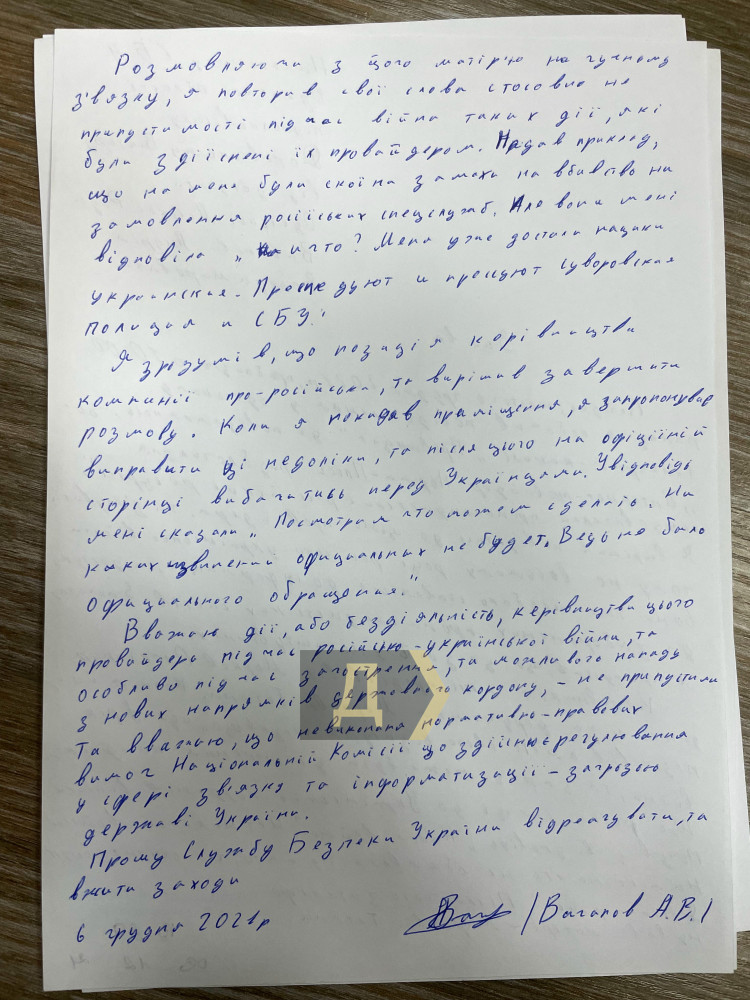 Розмовляючи з його матір'ю на гучному
зв'язку, я повторив свої слова стосовно не
припустимості під час війни таких дії, які
були здіїснені їх провайдером. Надав приклад,
що на мене були скоїна замахи на вбивство на
замовлення російських спецслужб. Але вони мені
відповіла „ и что? Меня уже достали нацики
украинская. Преследуют и прессуют Суворовская
полиция и СБУ!
Я зрозумів, що позиція керівництва
компанії про-російська, та вирішив завершити
розмову. Коли я покидав приміщення, я запропонував
виправити ці недоліки, та після цього на офіційній
сторінці вибачитись перед Українцями. У відповідь
мені сказали „Посмотрим что можем сделать. Ни
каких извинений официальных не будет. Ведь не было
официального обращения."
Вважаю дії, або бездіяльність, керівництва цього
провайдера під час російсько-української війни, та
особливо під час загострення, та можливого нападу
з нових напрямків державного кордону, - не припустими
Та вважаю, що невиконана нормативно-правових
вимог Національній Комісії що здійнює регулювання
у сфері зв'язку та інформатизації – загрозою
державі Україна.
Прошу Службу Безпеки України відреагувати, та
вжити заходи
6 грудня 2021р /Вагапов А.В./
Д